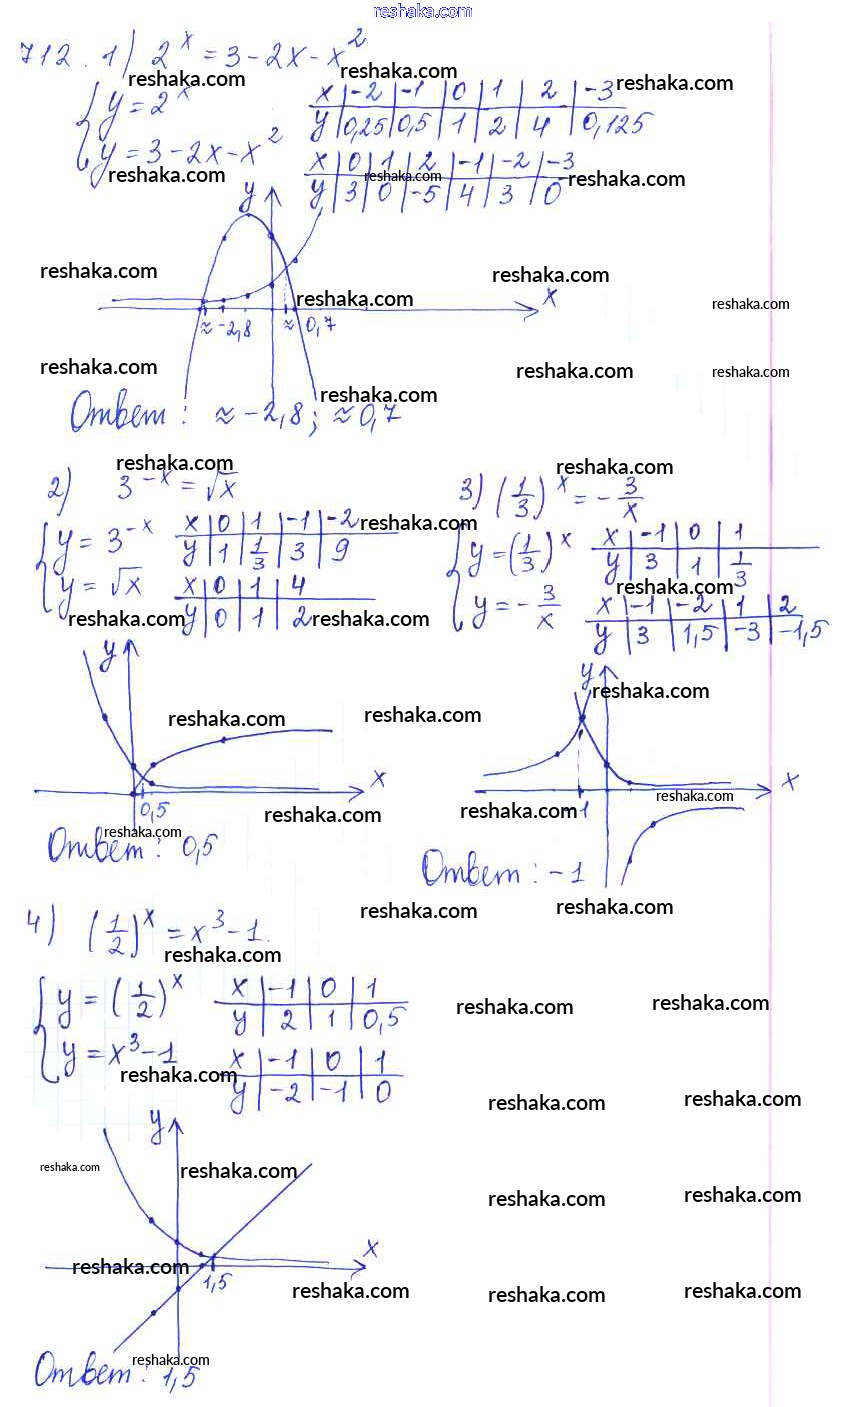 reshaka.com
712. 1) 2^x = 3 - 2x - x^2
reshaka.com reshaka.com reshaka.com
{ y = 2^x
x | -2 | -1 | 0 | 1 | 2 | -3
y | 0,25 | 0,5 | 1 | 2 | 4 | 0,125
y = 3 - 2x - x^2
x | 0 | 1 | 2 | -1 | -2 | -3
y | 3 | 0 | -5 | 4 | 3 | 0
reshaka.com reshaka.com reshaka.com
y
reshaka.com reshaka.com
reshaka.com x reshaka.com
≈ -2,8 ≈ 0,7
reshaka.com reshaka.com reshaka.com
reshaka.com
Ответ: ≈ -2,8; ≈ 0,7
reshaka.com reshaka.com
2) 3^-x = √x
3) (1/3)^x = - 3/x
{ y = 3^-x
x | 0 | 1 | -1 | -2
y | 1 | 1/3 | 3 | 9
reshaka.com
y = √x
x | 0 | 1 | 4
y | 0 | 1 | 2
reshaka.com reshaka.com
{ y = (1/3)^x
x | -1 | 0 | 1
y | 3 | 1 | 1/3
reshaka.com
y = - 3/x
x | -1 | -2 | 1 | 2
y | 3 | 1,5 | -3 | -1,5
y y
reshaka.com reshaka.com reshaka.com
x x
0,5 -1
reshaka.com reshaka.com reshaka.com
reshaka.com
Ответ: 0,5
Ответ: -1
reshaka.com reshaka.com
4) (1/2)^x = x^3 - 1.
reshaka.com
{ y = (1/2)^x
x | -1 | 0 | 1
y | 2 | 1 | 0,5
reshaka.com reshaka.com
y = x^3 - 1
x | -1 | 0 | 1
y | -2 | -1 | 0
reshaka.com
reshaka.com reshaka.com
y
reshaka.com reshaka.com
reshaka.com reshaka.com
x
reshaka.com
1,5
reshaka.com reshaka.com reshaka.com
reshaka.com
Ответ: 1,5